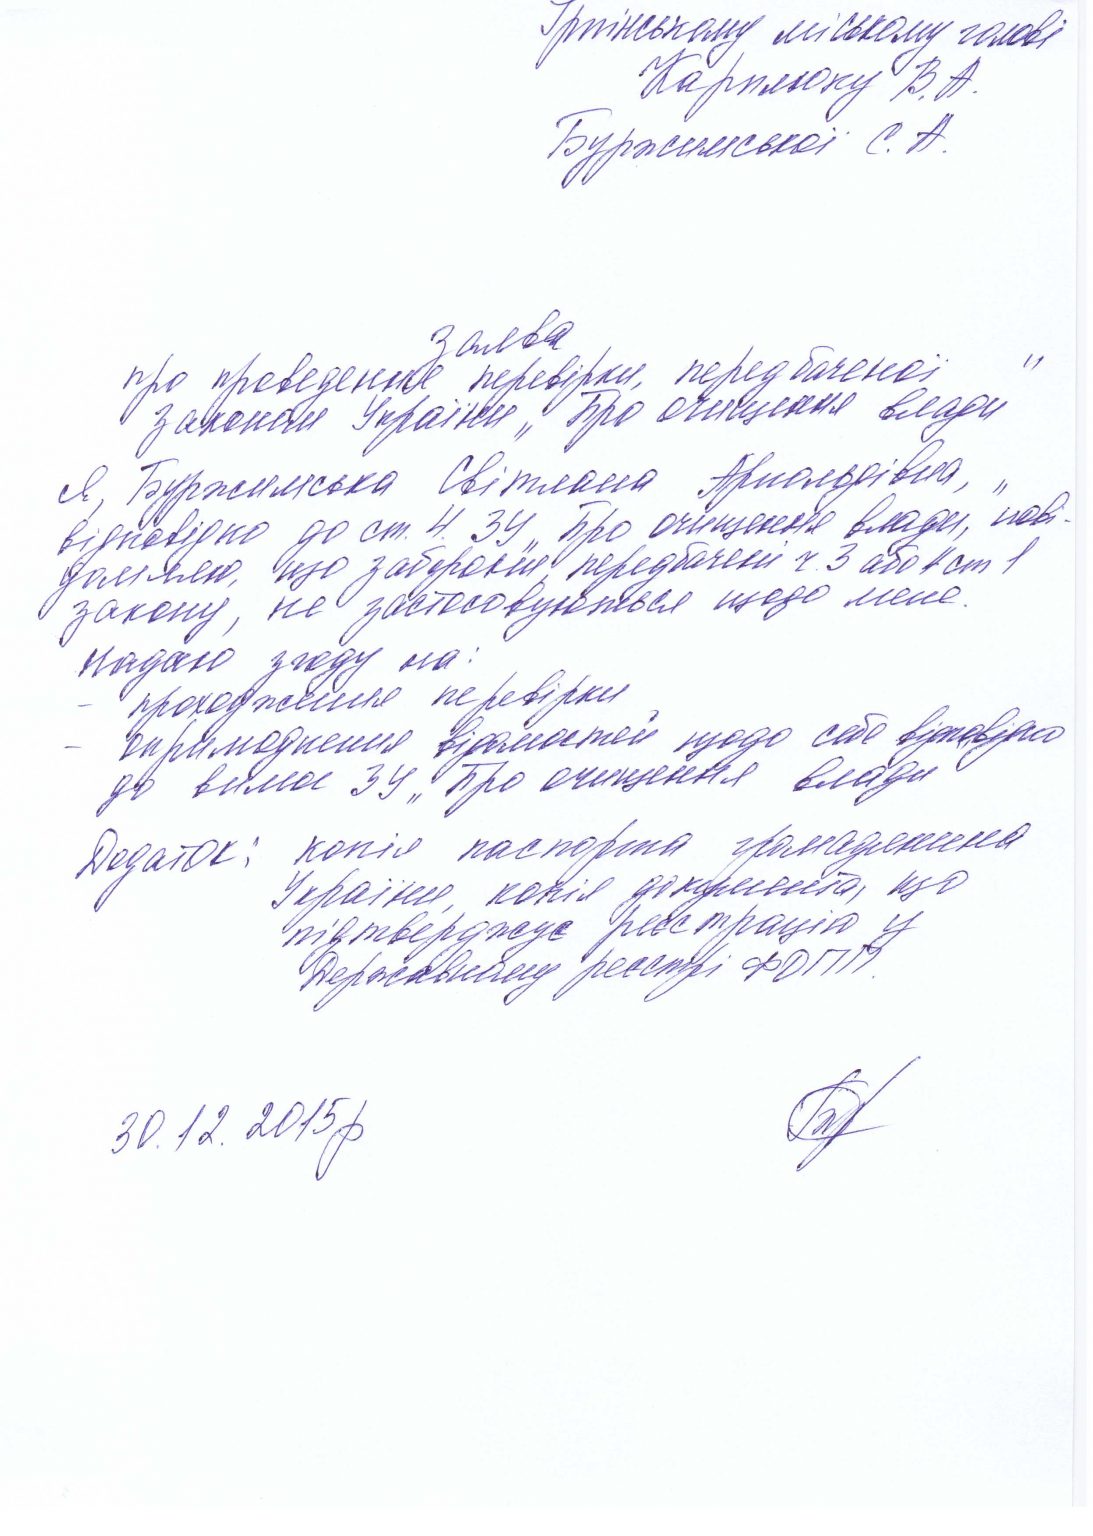 Ірпінському міському голові
Карплюку В. А.
Буржимської С. А.
Заява
про проведення перевірки, передбаченої
Законом України „Про очищення влади"
Я, Буржимська Світлана Арнольдівна,
відповідно до ст. 4. ЗУ „Про очищення влади", пові-
домляю, що заборони, передбачені ч. 3 або 4 ст 1
закону, не застосовуються щодо мене.
Надаю згоду на:
- проходження перевірки
- оприлюднення відомостей щодо себе відповідно
до вимог ЗУ „Про очищення влади"
Додаток: копія паспорта громадянина
України, копія документа, що
підтверджує реєстрацію у
Державному реєстрі ФОПП.
30.12.2015р